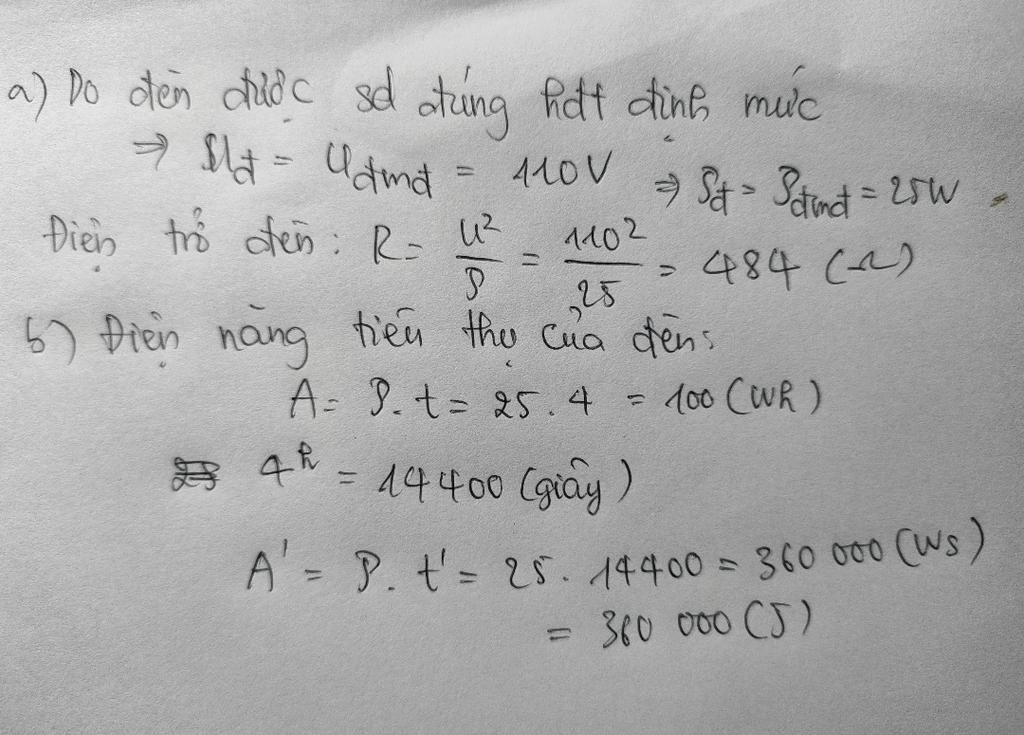 a) Do đèn được sd đúng hđt định mức
⇒ Uđ = Uđmđ = 110V ⇒ Pđ = Pđmđ = 25W
Điện trở đèn: R = U²/P = 110²/25 = 484 (Ω)
b) Điện năng tiêu thụ của đèn:
A = P.t = 25.4 = 100 (Wh)
4h = 14400 (giây)
A' = P.t' = 25.14400 = 360 000 (Ws)
= 360 000 (J)